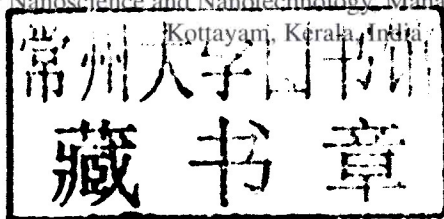 Nanoscience and Nanotechnology, Mahat
Kottayam, Kerala, India
常州大学图书馆
藏书章